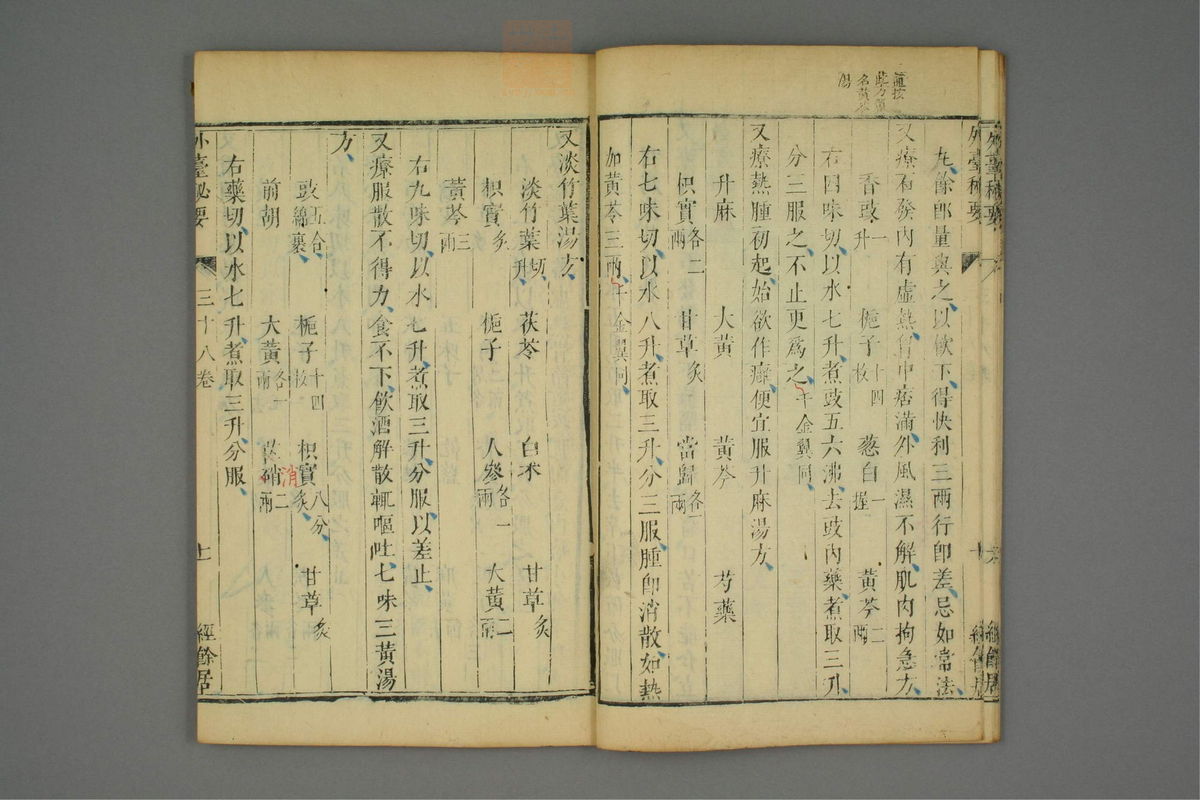 外臺秘要
丸、餘卽量與之、以飲下、得快利三兩行卽差、忌如常法、
又療石發内有虛熱、胷中痞滿、外風濕不解、肌肉拘急方、
香豉一升 梔子十四枚 葱白一握 黃芩二兩
右四味切、以水七升、煮豉五六沸、去豉内藥、煮取三升、
分三服之、不止更爲之、千金翼同、
又療熱腫初起、始欲作癰、便宜服升麻湯方、
升麻 大黃 黃芩 芍藥
枳實各二兩 甘草炙 當歸各一兩
右七味切、以水八升、煮取三升、分三服、腫卽消散、如熱
加黃芩三兩、千金翼同、
名黃芩
湯
又淡竹葉湯方、
淡竹葉切一升 茯苓 白朮 甘草炙
枳實炙 梔子 人參各一兩 大黃二兩
黃芩三兩
右九味切、以水七升、煮取三升、分服以差止、
又療服散不得力、食不下、飲酒解散、輒嘔吐、七味三黃湯
方、
豉五合綿裹、 梔子十四枚 枳實八分炙、 甘草炙
前胡 大黃各一兩 芒硝二兩
消
右藥切、以水七升、煮取三升、分服、
外臺秘要 三十八卷 十一 經餘居